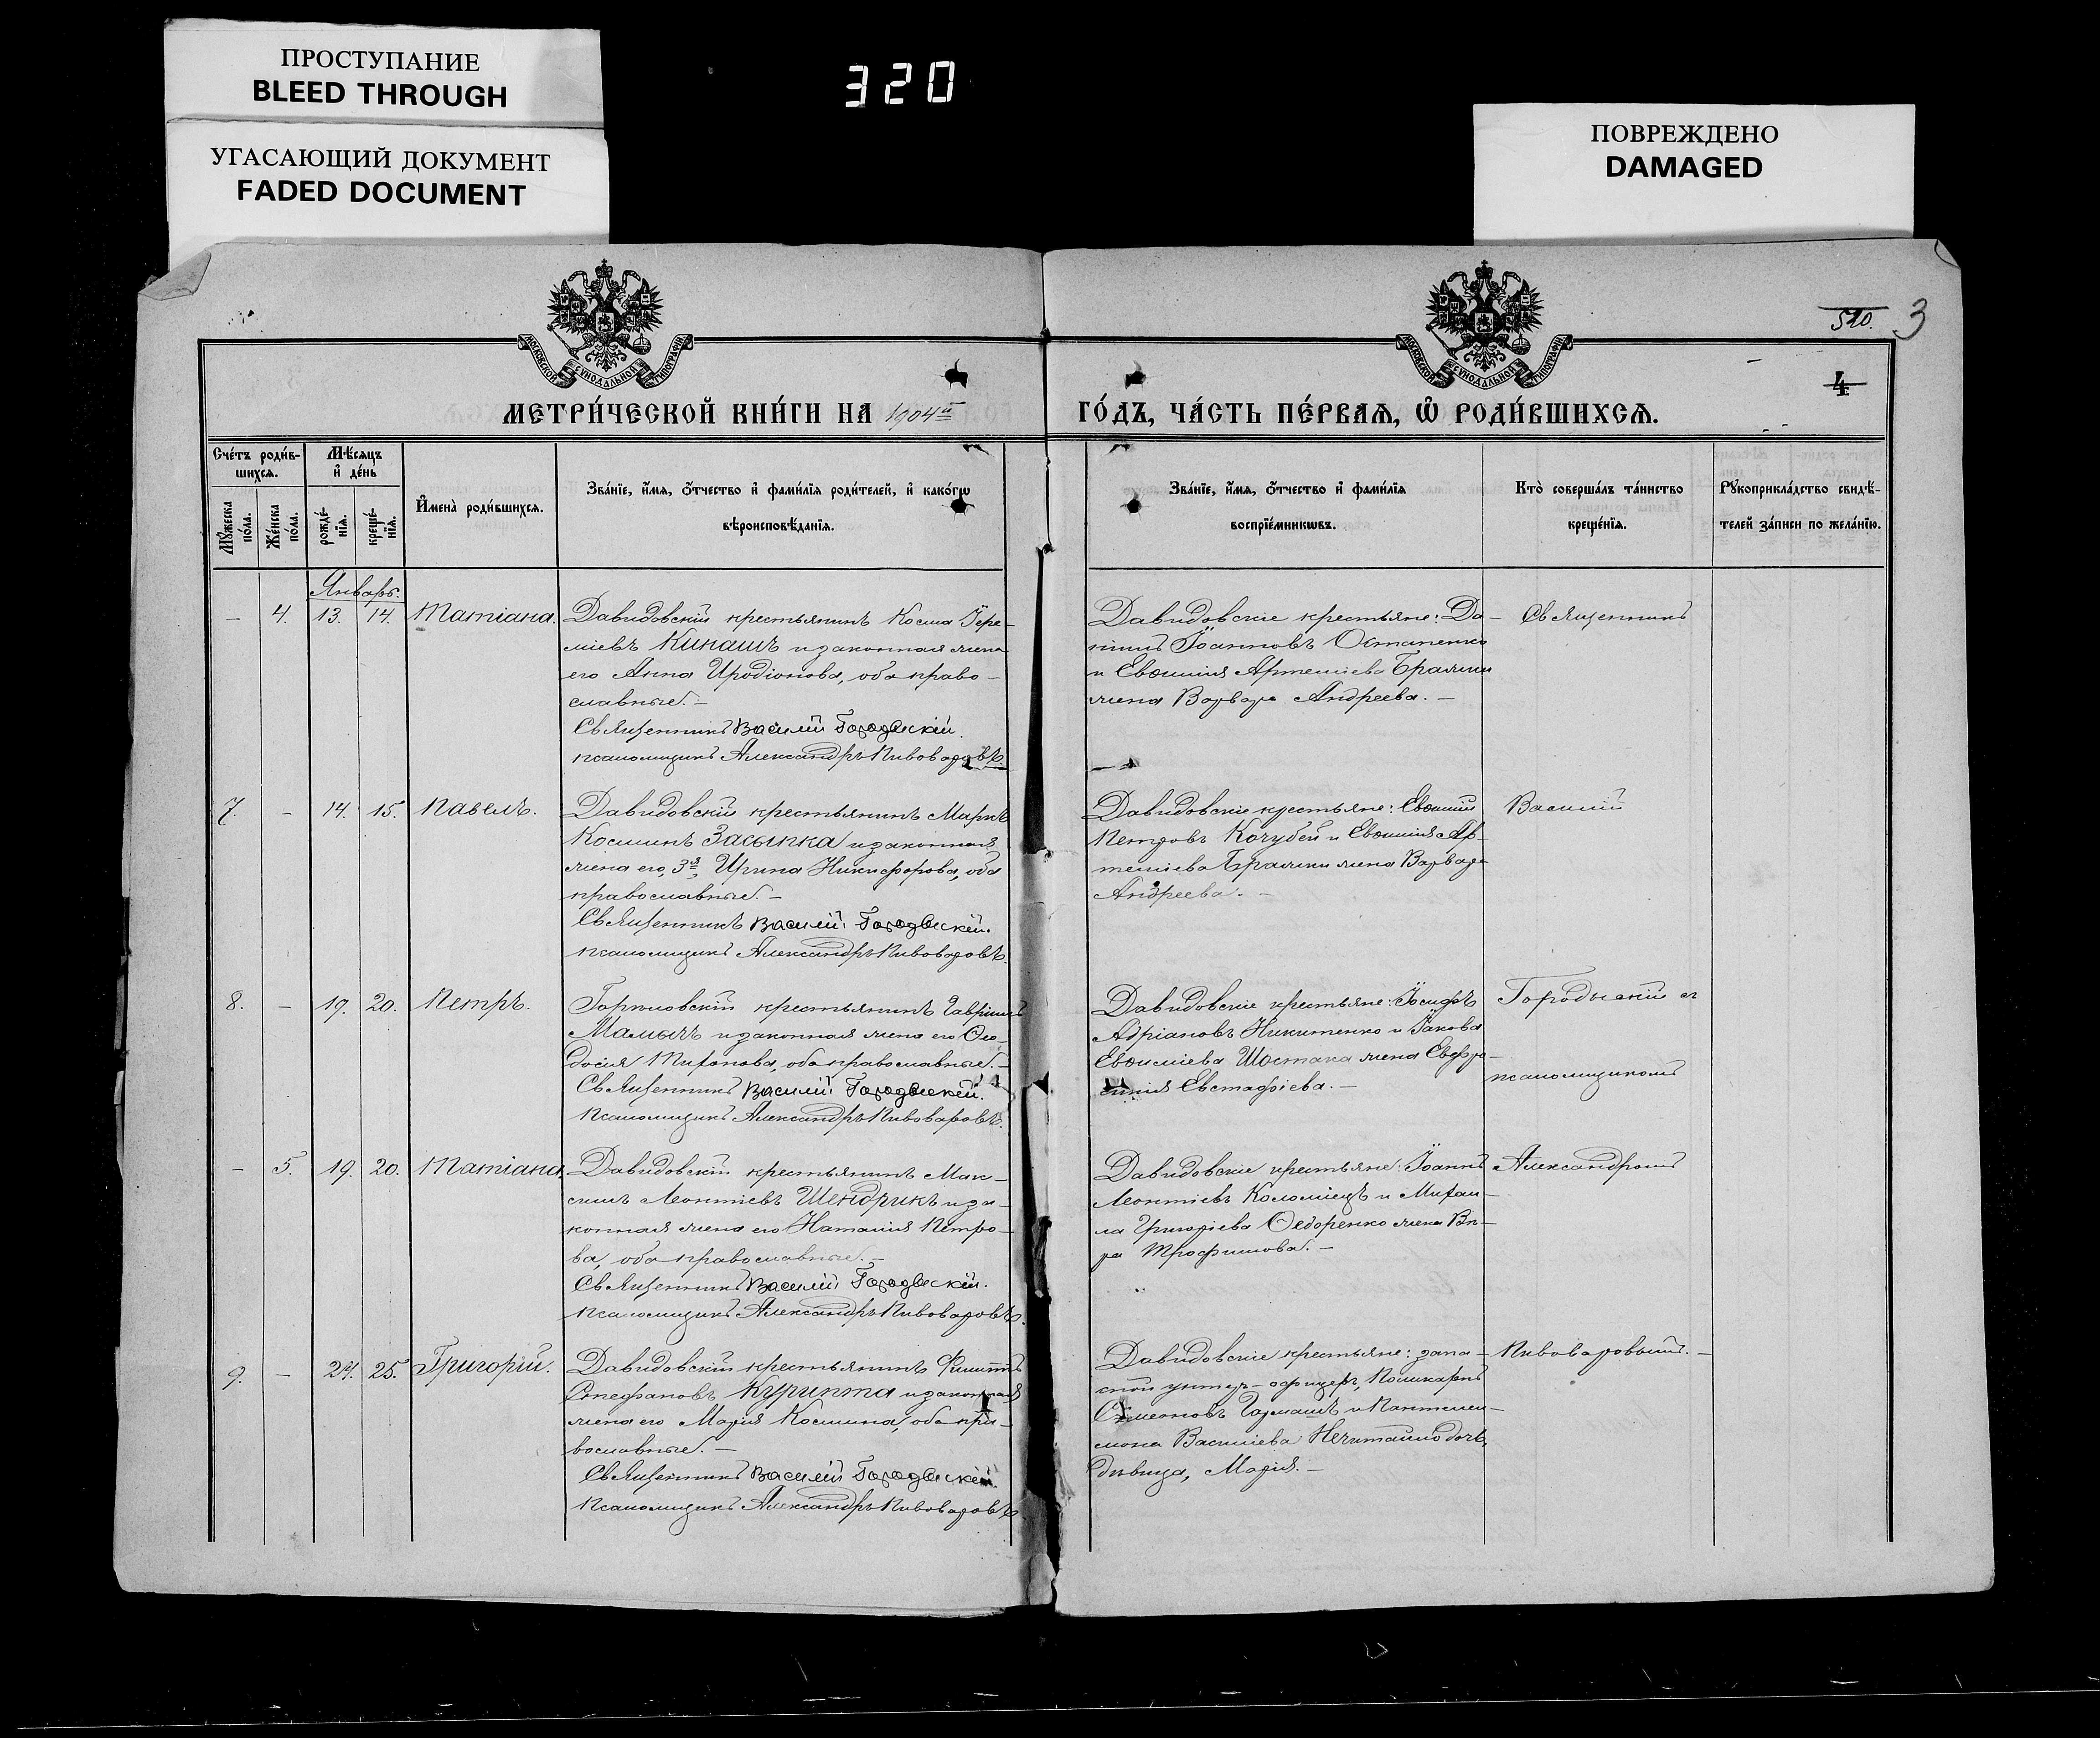 ПРОСТУПАНИЕ
BLEED THROUGH
УГАСАЮЩИЙ ДОКУМЕНТ
FADED DOCUMENT
320
ПОВРЕЖДЕНО
DAMAGED
510. 3
4
МОСКОВСКОЙ СУНОДАЛЬНОЙ ТИПОГРАФІИ
МОСКОВСКОЙ СУНОДАЛЬНОЙ ТИПОГРАФІИ
МЕТРИ́ЧЕСКОЙ КНИ́ГИ НА 1904й
ГО́ДЪ, ЧА́СТЬ ПЕ́РВАЯ, Ѡ РОДИ́ВШИХСЯ.
Сче́тъ роди́в-
шихся.
Мѣ́сяцъ
и҆ де́нь
Мꙋ́жеска
по́ла.
Же́нска
по́ла.
рожде́-
нїя.
креще́-
нїя.
И҆мена̀ роди́вшихся.
Зва́нїе, и҆́мя, ѻ҆́тчество и҆ фами́лїя роди́телей, и҆ како́гѡ
вѣроисповѣ́данїя.
Зва́нїе, и҆́мя, ѻ҆́тчество и҆ фами́лїя
воспрїе́мникѡвъ.
Кто̀ соверша́лъ та́инство
креще́нїя.
Рꙋкоприкла́дство свидѣ́-
телей за́писи по жела́нїю.
Январь.
– 4. 13. 14. Татіана.
Давидовскій крестьянинъ Косма Іере-
міевъ Кинашъ и законная жена
его Анна Иродіонова, оба право-
славные. –
Священникъ Василій Городыскій.
псаломщикъ Александръ Пивоваровъ.
Давидовскіе крестьяне: Да-
ніилъ Іоанновъ Остапенко
и Евѳимія Артеміева Бражки
жена Варвара Андреева. –
Священникъ
7. – 14. 15. Павелъ.
Давидовскій крестьянинъ Маркъ
Косминъ Засыпка и законная
жена его, 3я, Ирина Никифорова, оба
православные. –
Священникъ Василій Городыскій.
псаломщикъ Александръ Пивоваровъ.
Давидовскіе крестьяне: Евѳимій
Петровъ Кочубей и Евѳимія Ар-
теміева Бражки жена Варвара
Андреева. –
Василій
8. – 19. 20. Петръ.
крестьянинъ Гавріилъ
Мамычъ и законная жена его Ѳео-
досія Тихонова, оба православные. –
Священникъ Василій Городыскій.
Псаломщикъ Александръ Пивоваровъ.
Давидовскіе крестьяне: Іосифъ
Адріановъ Никитенко и Іакова
Евѳиміева Шостака жена Евфро-
синія Евстафіева. –
Городыскій съ
псаломщикомъ
– 5. 19. 20. Татіана.
Давидовскій крестьянинъ Мак-
симъ Леонтіевъ Шендрикъ и за-
конная жена его Наталія Петро-
ва, оба православные. –
Священникъ Василій Городыскій.
псаломщикъ Александръ Пивоваровъ.
Давидовскіе крестьяне: Іоаннъ
Леонтіевъ Коломіецъ и Михаи-
ла Григоріева Ѳедоренко жена Вѣ-
ра Трофимова. –
Александромъ
9. – 24. 25. Григорій.
Давидовскій крестьянинъ Филиппъ
Стефановъ Курипта и законная
жена его Марія Космина, оба пра-
вославные. –
Священникъ Василій Городыскій.
Псаломщикъ Александръ Пивоваровъ.
Давидовскіе крестьяне: запа-
сной унтер-офицеръ, Поликарпъ
Симеоновъ Гармашъ и Пантелеи-
мона Василіева Нечитайло дочь,
дѣвица, Марія. –
Пивоваровымъ. –